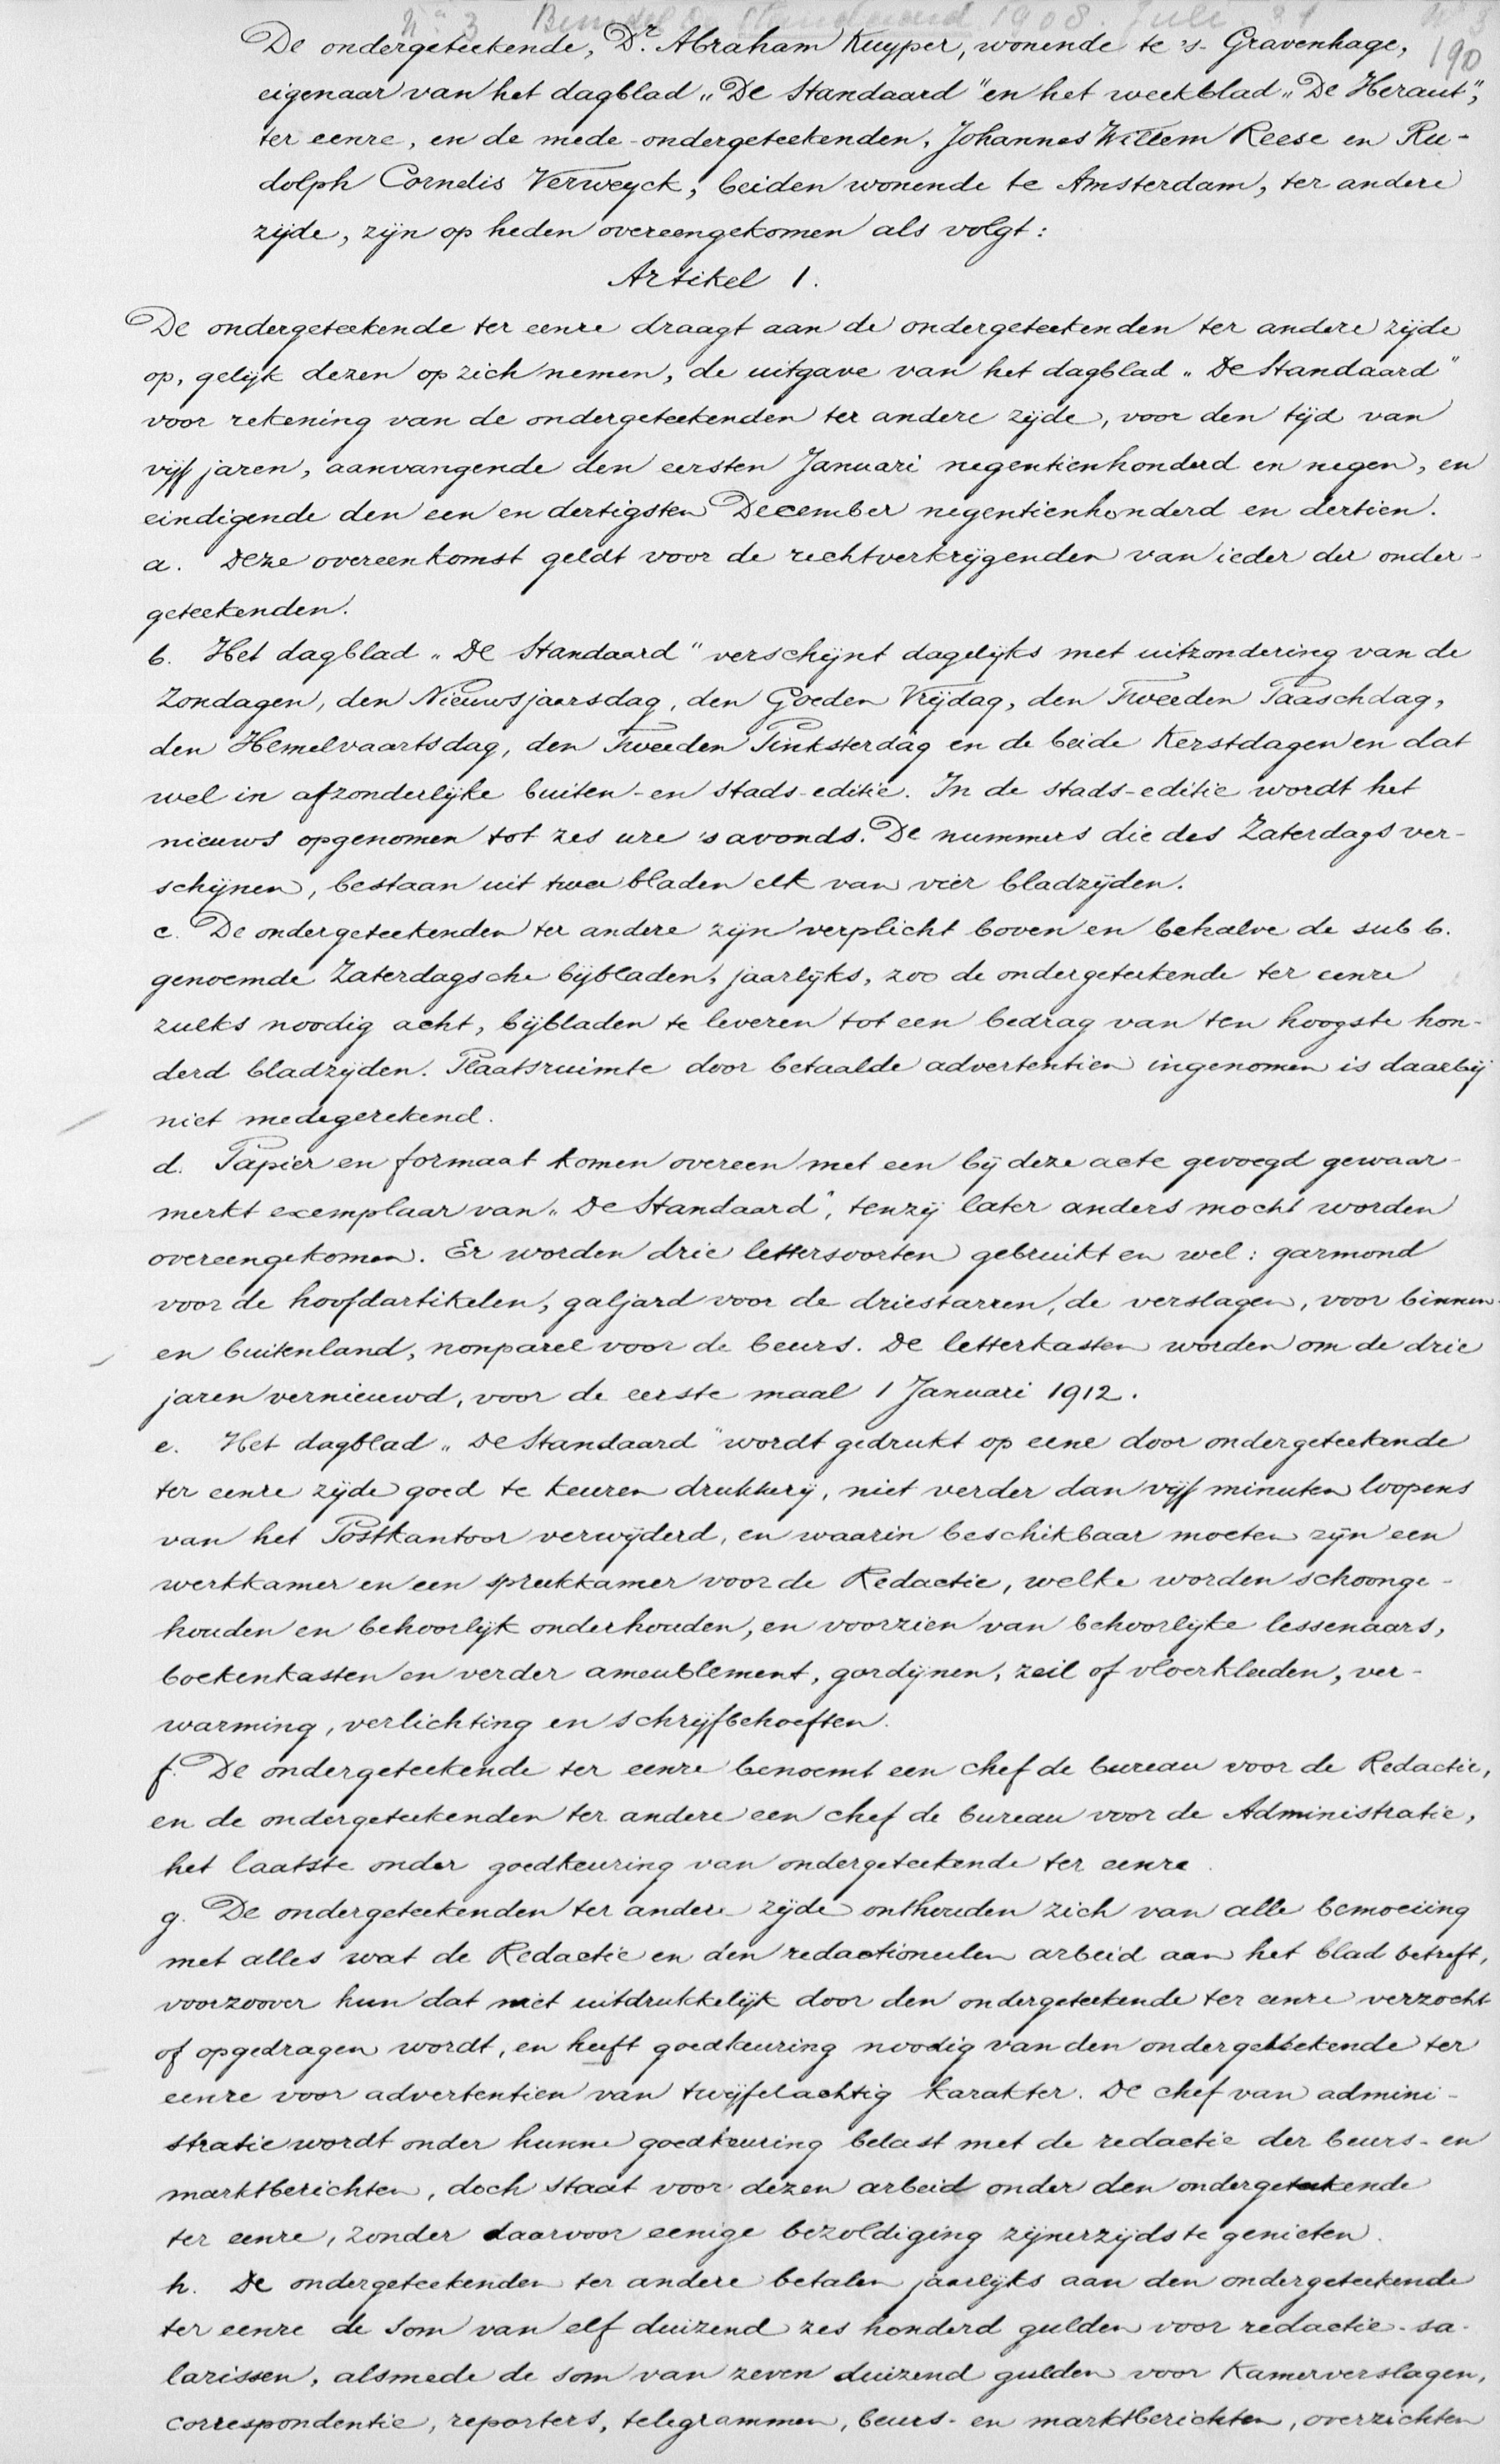 No 3 Bundel De Standaard 1908. Juli 31 No 3
190
De ondergeteekende, Dr. Abraham Kuyper, wonende te 's-Gravenhage,
eigenaar van het dagblad „De Standaard" en het weekblad „De Heraut",
ter eenre, en de mede-ondergeteekenden, Johannes Willem Reese en Ru-
dolph Cornelis Verweyck, beiden wonende te Amsterdam, ter andere
zijde, zijn op heden overeengekomen als volgt:
Artikel 1.
De ondergeteekende ter eenre draagt aan de ondergeteekenden ter andere zijde
op, gelijk dezen op zich nemen, de uitgave van het dagblad „De Standaard"
voor rekening van de ondergeteekenden ter andere zijde, voor den tijd van
vijf jaren, aanvangende den eersten Januari negentienhonderd en negen, en
eindigende den een en dertigsten December negentienhonderd en dertien.
a. Deze overeenkomst geldt voor de rechtverkrijgenden van ieder der onder-
geteekenden.
b. Het dagblad „De Standaard" verschijnt dagelijks met uitzondering van de
Zondagen, den Nieuwsjaarsdag, den Goeden Vrijdag, den Tweeden Paaschdag,
den Hemelvaartsdag, den Tweeden Pinksterdag en de beide Kerstdagen en dat
wel in afzonderlijke buiten- en stads-editie. In de stads-editie wordt het
nieuws opgenomen tot zes ure 's avonds. De nummers die des Zaterdags ver-
schijnen, bestaan uit twee bladen elk van vier bladzijden.
c. De ondergeteekenden ter andere zijn verplicht boven en behalve de sub b.
genoemde Zaterdagsche bijbladen, jaarlijks, zoo de ondergeteekende ter eenre
zulks noodig acht, bijbladen te leveren tot een bedrag van ten hoogste hon-
derd bladzijden. Plaatsruimte door betaalde advertentien ingenomen is daarbij
niet medegerekend.
d. Papier en formaat komen overeen met een bij deze acte gevoegd gewaar-
merkt exemplaar van „De Standaard", tenzij later anders mocht worden
overeengekomen. Er worden drie lettersoorten gebruikt en wel: garmond
voor de hoofdartikelen, galjard voor de driestarren, de verslagen, voor binnen-
en buitenland, nonparel voor de beurs. De letterkasten worden om de drie
jaren vernieuwd, voor de eerste maal 1 Januari 1912.
e. Het dagblad „De Standaard" wordt gedrukt op eene door ondergeteekende
ter eenre zijde goed te keuren drukkerij, niet verder dan vijf minuten loopens
van het Postkantoor verwijderd, en waarin beschikbaar moeten zijn een
werkkamer en een spreekkamer voor de Redactie, welke worden schoonge-
houden en behoorlijk onderhouden, en voorzien van behoorlijke lessenaars,
boekenkasten en verder ameublement, gordijnen, zeil of vloerkleeden, ver-
warming, verlichting en schrijfbehoeften.
f. De ondergeteekende ter eenre benoemt een chef de bureau voor de Redactie,
en de ondergeteekenden ter andere een chef de bureau voor de Administratie,
het laatste onder goedkeuring van ondergeteekende ter eenre.
g. De ondergeteekenden ter andere zijde onthouden zich van alle bemoeiing
met alles wat de Redactie en den redactioneelen arbeid aan het blad betreft,
voorzoover hun dat niet uitdrukkelijk door den ondergeteekende ter eenre verzocht
of opgedragen wordt, en heeft goedkeuring noodig van den ondergeteekende ter
eenre voor advertentien van twijfelachtig karakter. De chef van admini-
stratie wordt onder hunne goedkeuring belast met de redactie der beurs- en
marktberichten, doch staat voor dezen arbeid onder den ondergeteekende
ter eenre, zonder daarvoor eenige bezoldiging zijnerzijds te genieten.
h. De ondergeteekenden ter andere betalen jaarlijks aan den ondergeteekende
ter eenre de som van elf duizend zes honderd gulden voor redactie-sa-
larissen, alsmede de som van zeven duizend gulden voor Kamerverslagen,
correspondentie, reporters, telegrammen, beurs- en marktberichten, overzichten